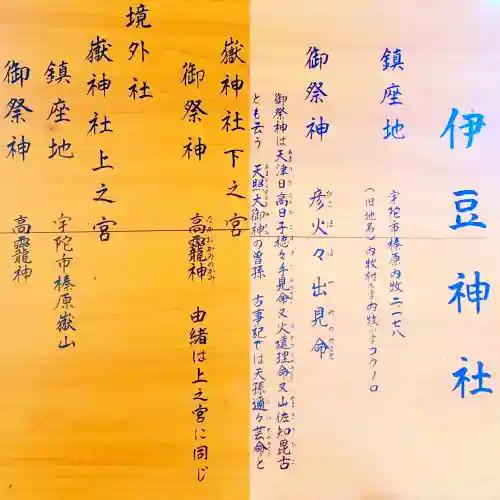 伊豆神社
鎮座地　宇陀市榛原内牧二一七八
(旧地名)内牧村大字内牧小字コウノロ
御祭神　彦火々出見命
御祭神は天津日高日子穂々手見命又火遠理命又山佐知毘古
とも云う　天照大御神の曽孫　古事記では天孫邇々芸命と
嶽神社下之宮
御祭神　高龗神　由緒は上之宮に同じ
境外社
嶽神社上之宮
鎮座地　宇陀市榛原嶽山
御祭神　高龗神